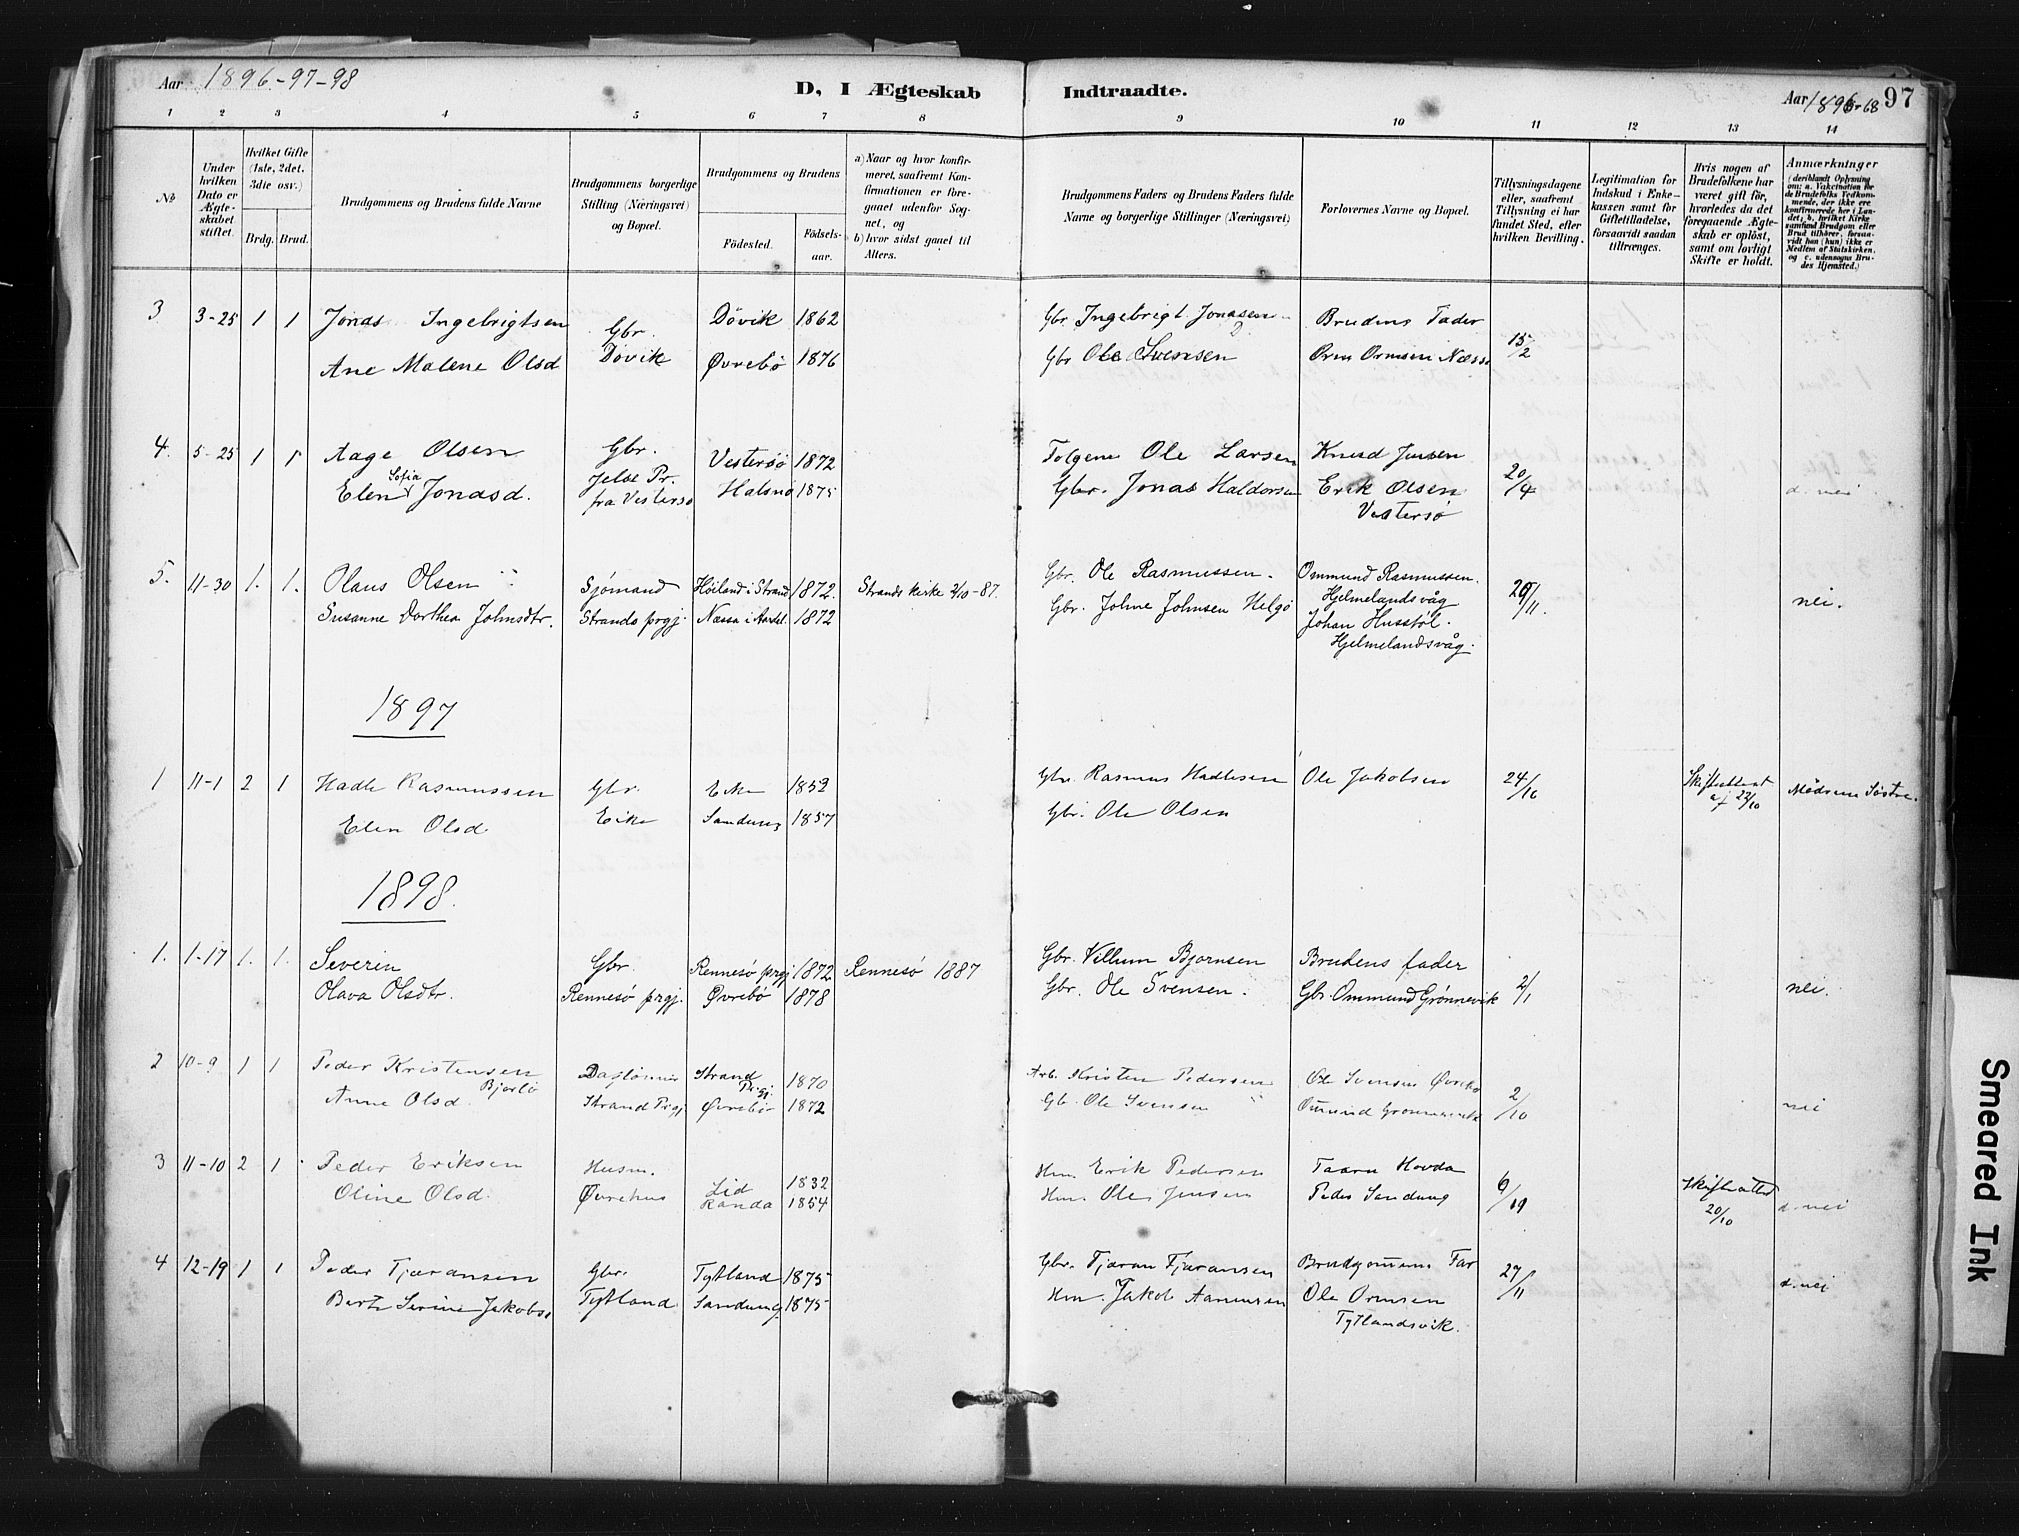 Aar 1896-97-98
D, I Ægteskab Indtraadte.
Aar 1896 97
1 2 3 4 5 6 7 8 9 10 11 12 13 14
№
Under hvilken Dato er Ægteskabet stiftet.
Hvilket Gifte (1ste, 2det, 3die osv.)
Brdg. Brud.
Brudgommens og Brudens fulde Navne
Brudgommens borgerlige Stilling (Næringsvei) og Bopæl.
Brudgommens og Brudens
Fødested.
Fødselsaar.
a) Naar og hvor konfirmeret, saafremt Konfirmationen er foregaaet udenfor Sognet, og
b) hvor sidst gaaet til Alters.
Brudgommens Faders og Brudens Faders fulde Navne og borgerlige Stillinger (Næringsvei)
Forlovernes Navne og Bopæl.
Tillysningsdagene eller, saafremt Tillysning ei har fundet Sted, efter hvilken Bevilling.
Legitimation for Indskud i Enkekassen samt for Giftetilladelse, forsaavidt saadan tiltrænges.
Hvis nogen af Brudefolkene har været gift før, hvorledes da det foregaaende Ægteskab er opløst, samt om lovligt Skifte er holdt.
Anmærkninger
(deriblandt Oplysning om: a. Vakcination for de Brudefolks Vedkommende, der ikke ere konfirmerede her i Landet; b. hvilket Kirkesamfund Brudgom eller Brud tilhører, forsaavidt han (hun) ikke er Medlem af Statskirken, og c. udensogns Brudes Hjemsted.)
3 3-25 1 1 Jonas Ingebrigtsen Gbr. Døvik 1862 Gbr Ingebrigt Jonasen Brudens Fader 15/2
Ane Malene Olsd Døvik Øvrebø 1876 Gbr Ole Svensen Orm Ormsen Næsse
4. 5-25 1 1 Aage Olsen Gbr. Vestersø 1872 Ole Larsen Knud Jensen 20/4
Elen Sofia Jonasd. Jelse Pr. Halsnø 1875 Gbr. Jonas Haldorsen Erik Olsen d. nei
fra Vestersø Vestersø
5. 11-30 1. 1. Olaus Olsen Sjømand Høiland i Strand 1872. Strands kirke 2/10-87. Gbr. Ole Rasmussen. Ommund Rasmussen. Hjelmelandsvåg 29/11. nei.
Susanne Dorthea Johnsdtr. Strands prgj. Næssa i Aardal 1872 Gbr. Johne Johnsen Helgø Johan Husstøl. Hjelmelandsvåg.
1897
1 11-1 2 1 Hadle Rasmussen Gbr. Eike 1852 Gbr. Rasmus Hadlesen Ole Jakobsen 24/10 Skifteattest af 22/10
Elen Olsd Eike Sandeng 1857 Gbr. Ole Olsen
1898.
1. 1-17 1. 1. Severin Gbr. Rennesø prgj 1872 Rennesø 1887 Gbr. Villum Bjørnsen Brudens fader
Olava Olsdtr. Rennesø prgj. Øvrebø 1878 Gbr. Ole Svensen. Gbr. Ommund Grønnevik 2/1 nei.
2 10-9 1 1 Peder Kristensen Bjørlø Dagløner Strand Prgj. 1870 Arb. Kristen Pedersen Ole Svensen Øvrebø 2/10
Anne Olsd. Strand Prgj Øvrebø 1872 Gb. Ole Svensen Omund Grønnevik nei
3 11-10 2 1 Peder Eriksen Husm. Lid 1832 Hm. Erik Pedersen Taarn Hovda 6/10 Skifteattest 20/10
Oline Olsd. Øvrehus Randa 1854 Hm. Ole Jensen Peder Sandeng d. nei
4 12-19 1 1 Peder Tjæransen Gbr. Tytland 1875 Gbr. Tjæran Tjæransen Brudgommens Far 27/11 d. nei
Berte Serine Jakobs. Tytland Sandeng 1875 Hm. Jakob Aanensen Ole Ormsen
Tytlandsvik.
Smeared Ink